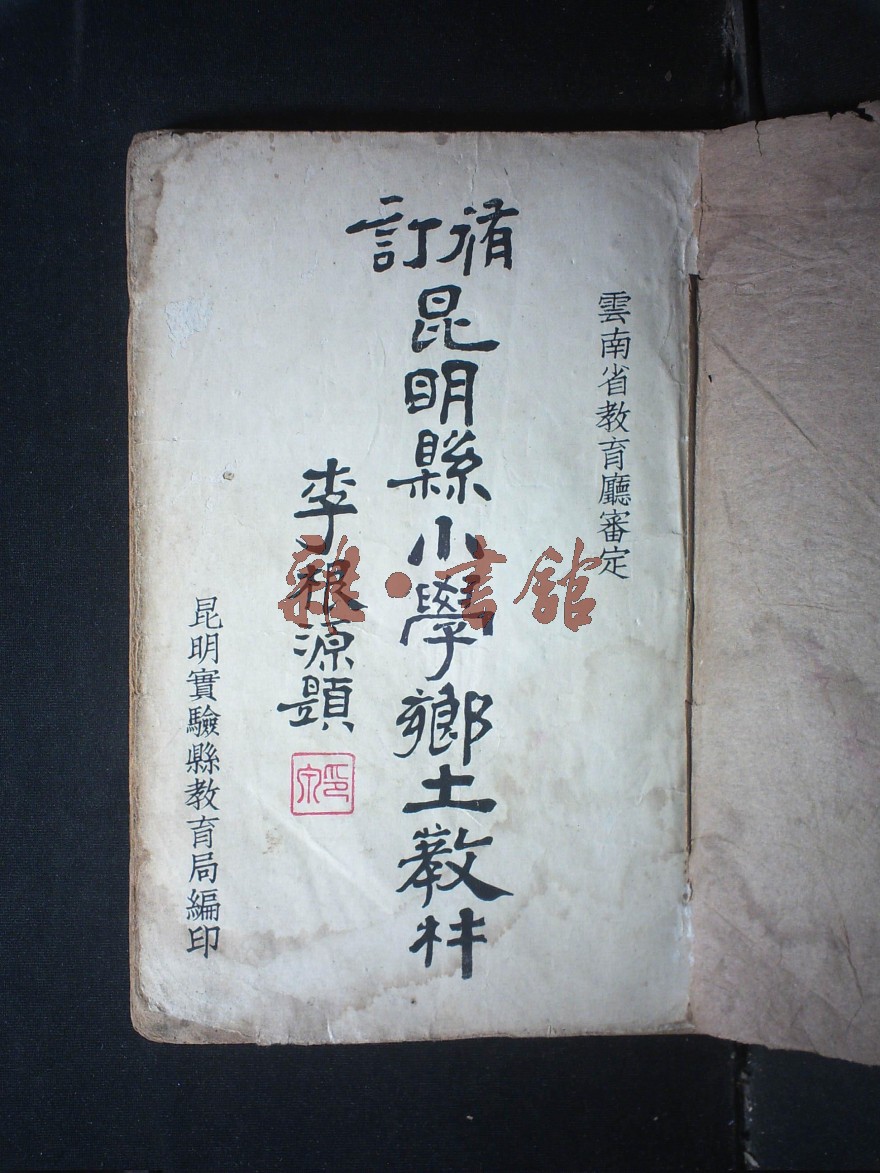 雲南省教育廳審定
修訂
昆明縣小學鄉土教材
李根源題
昆明實驗縣教育局編印
雜·書館